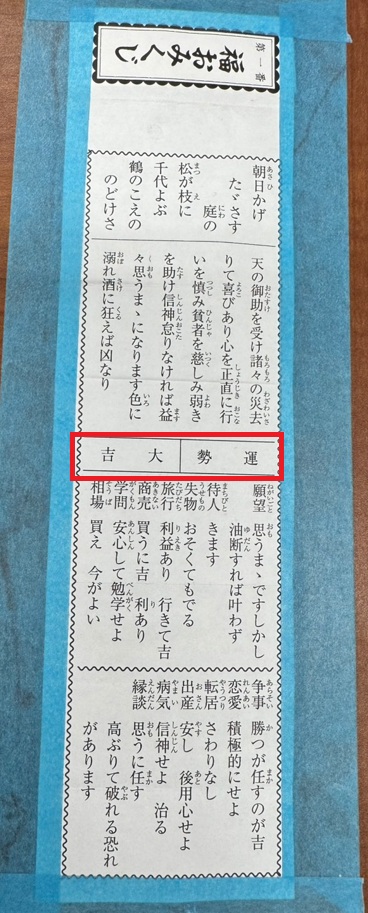 第一番
福おみくじ
朝日かげ
たゞさす
庭の
松が枝に
千代よぶ
鶴のこえの
のどけさ
天の御助を受け諸々の災去
りて喜びあり心を正直に行
いを慎み貧者を慈しみ弱き
を助け信神怠りなければ益
々思うまゝになります色に
溺れ酒に狂えば凶なり
運勢 大吉
願望 思うまゝですしかし
油断すれば叶わず
待人 きます
失物 おそくてもでる
旅行 利益あり 行きて吉
商売 買うに吉 利あり
学問 安心して勉学せよ
相場 買え 今がよい
争事 勝つが任すのが吉
恋愛 積極的にせよ
転居 さわりなし
出産 安し 後用心せよ
病気 信神せよ 治る
縁談 思うに任す
高ぶりて破れる恐れ
があります